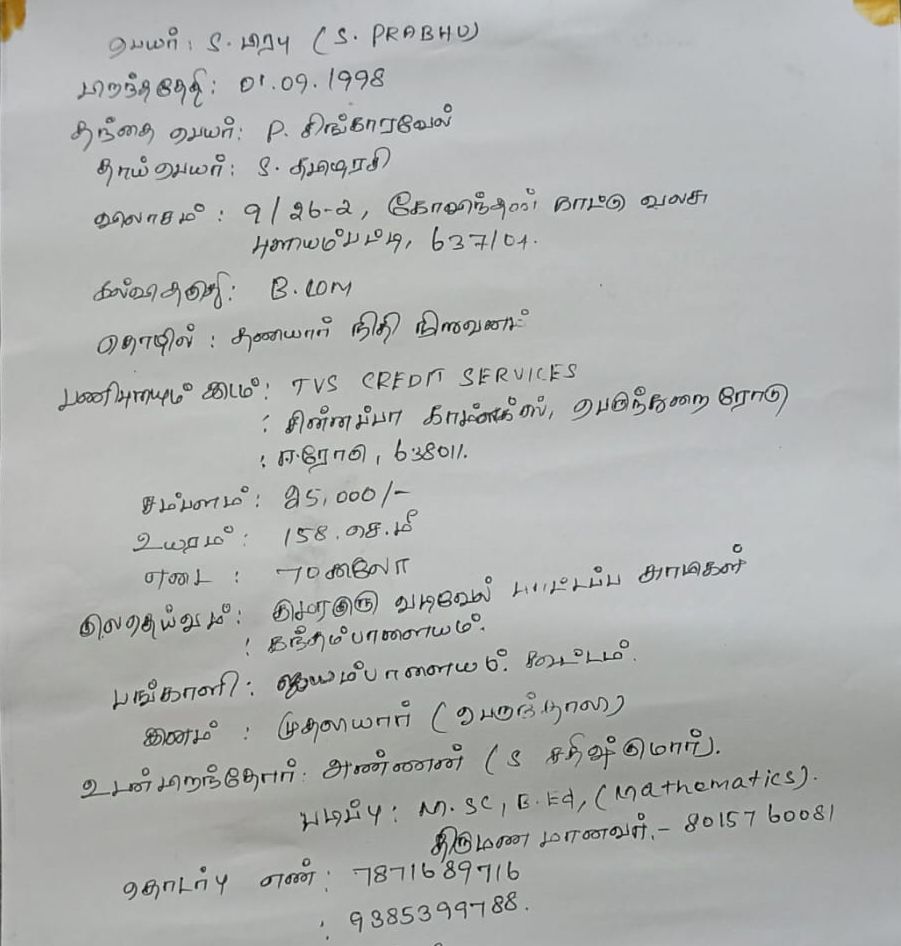 பெயர்: S. பிரபு (S. PRABHU)
பிறந்ததேதி: 01.09.1998
தந்தை பெயர்: P. சிங்காரவேல்
தாய் பெயர்: S. தமிழரசி
விலாசம்: 9/26-2, கோவிந்தன் காட்டு வலசு
புளியம்பட்டி, 637104.
கல்வி தகுதி: B.COM
தொழில்: தனியார் நிதி நிறுவனம்
பணிபுரியும் இடம்: TVS CREDIT SERVICES
: சின்னப்பா காம்ப்ளக்ஸ், பெருந்துறை ரோடு
: ஈரோடு, 638011.
சம்பளம்: 25,000/-
உயரம்: 158. செ.மீ
எடை: 70 கிலோ
குலதெய்வம்: குமரகுரு வடிவேல் பாட்டப்ப சாமிகள்
: கந்தம்பாளையம்.
பங்காளி: ஐயம்பாளையம். கூட்டம்.
இனம்: முதலியார் (பெருந்தாலி)
உடன்பிறந்தோர்: அண்ணன் (S சதிஷ் குமார்).
படிப்பு: M.SC, B.Ed, (Mathematics).
திருமணமானவர்.- 8015760081
தொடர்பு எண்: 7871689716
: 9385399788.